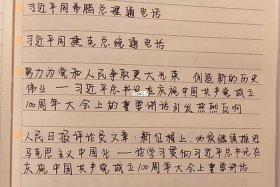 习近平同希腊总理通电话
习近平同捷克总统通电话
努力为党和人民争取更大光荣 创造新的历史
伟业——习近平总书记在庆祝中国共产党成立
100周年大会上的重要讲话引发热烈反响
人民日报评论员文章:新征程上,必须继续推进
马克思主义中国化——论学习贯彻习近平总书记在
庆祝中国共产党成立100周年大会上重要讲话